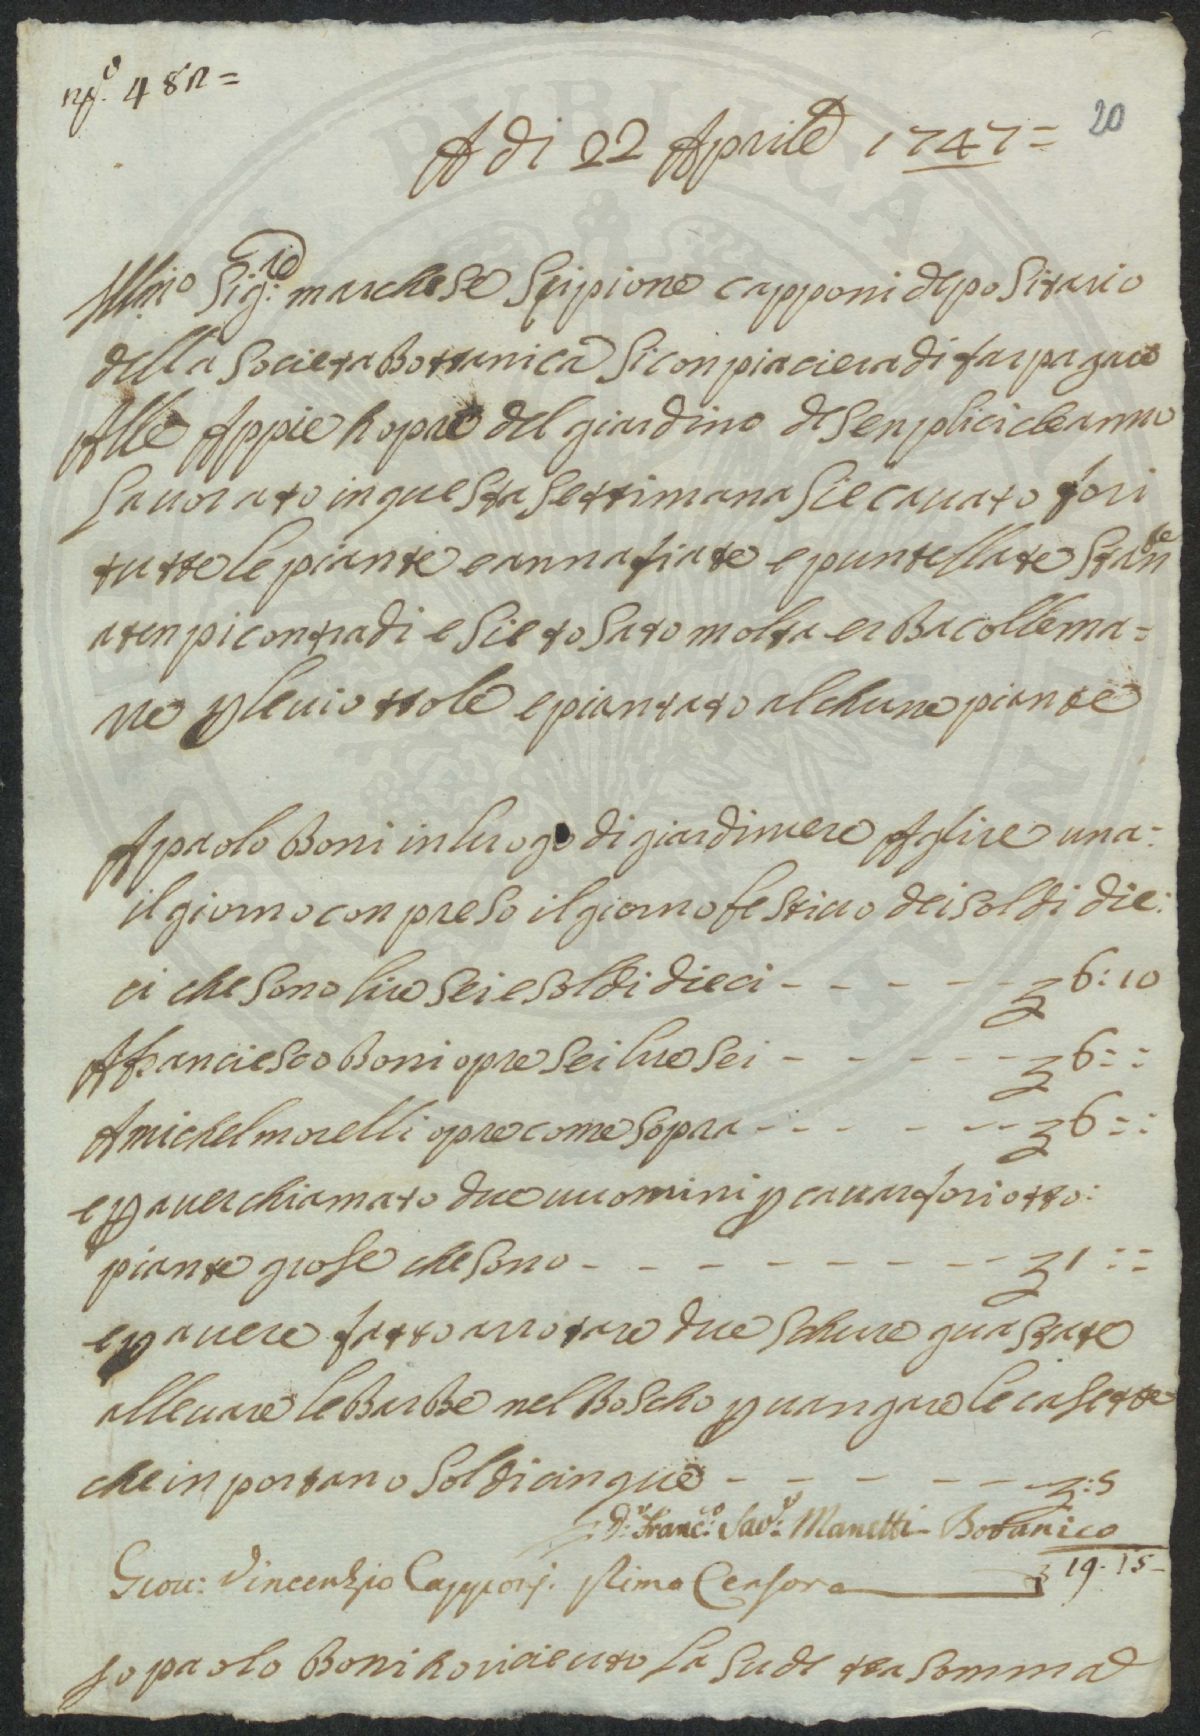 nº. 482=
20
A di 22 Aprile 1747=
Illmo Sig:re marchese Scipione capponi depositario
della Societa Bottanica Si conpiaciera di far pagare
Alle Appie hopre del giardino de Senplici che anno
lavorato in questa Settimana Sie cavato fori
tutte le piante e annafiate e puntellate Stante
a tenpi contradi e Sie tosato molta erba colle ma=
ne p le viottole e piantato alchune piante
A paolo Boni in luogo di giardiniere A lire una:
il giorno conpreso il giorno festivo dei soldi die:
ci che sono lire sei e soldi dieci - - - - - - 6:10
A franciesco Boni opre sei lire sei - - - - - - 6=:
A michel morelli opre come sopra - - - - - - 6=:
e p aver chiamato due uuomini p cavar fori otto:
piante grose che sono - - - - - - - - - 1 :=
e p avere fatto arrotare due schure guastate
allevare le barbe nel Boscho p vangare le casette
che inportano soldi cinque - - - - - - :5
D:r Franc:o Sav:o Manetti Botanico
Giov: Vincenzio Capponi. Primo Censore 19.15-
Io paolo Boni ho riceuto la Sude tta somma